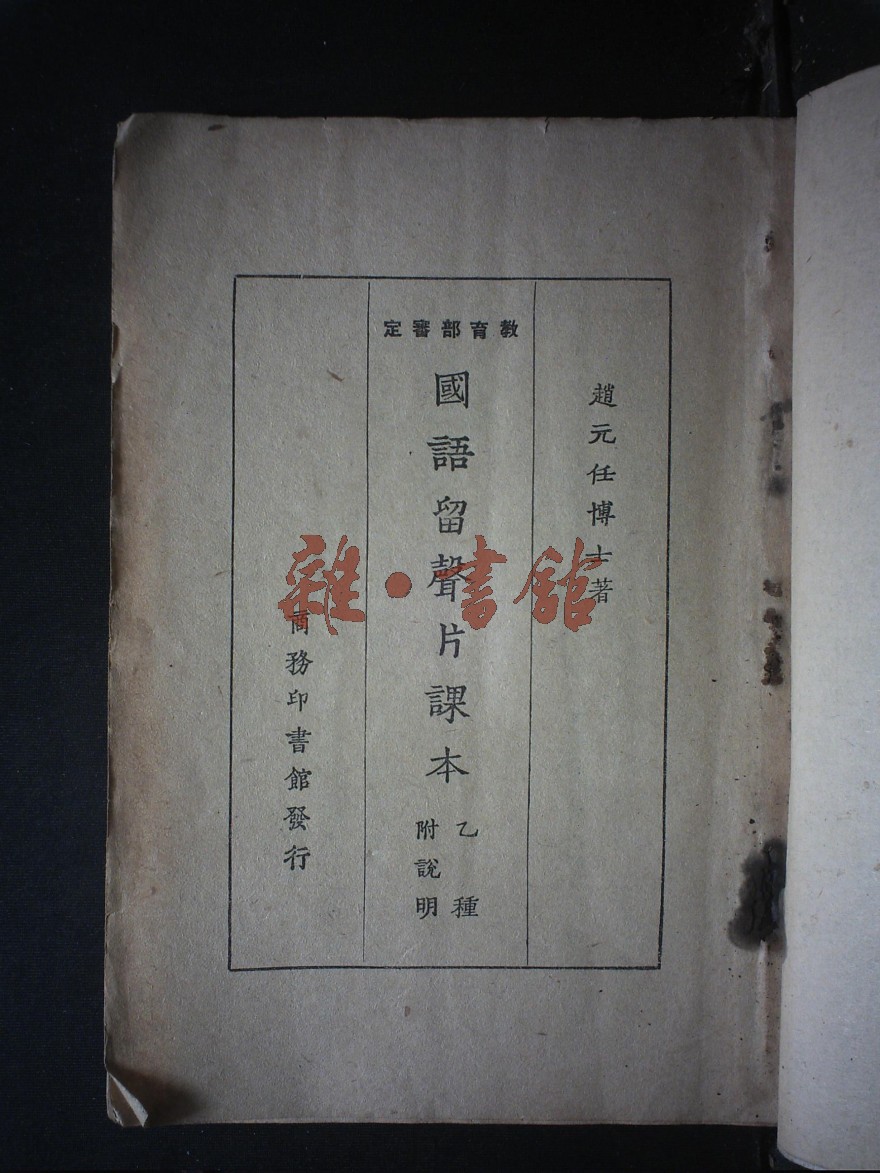 趙元任博士著
教育部審定
國語留聲片課本
乙種
附說明
商務印書館發行
雜·書館